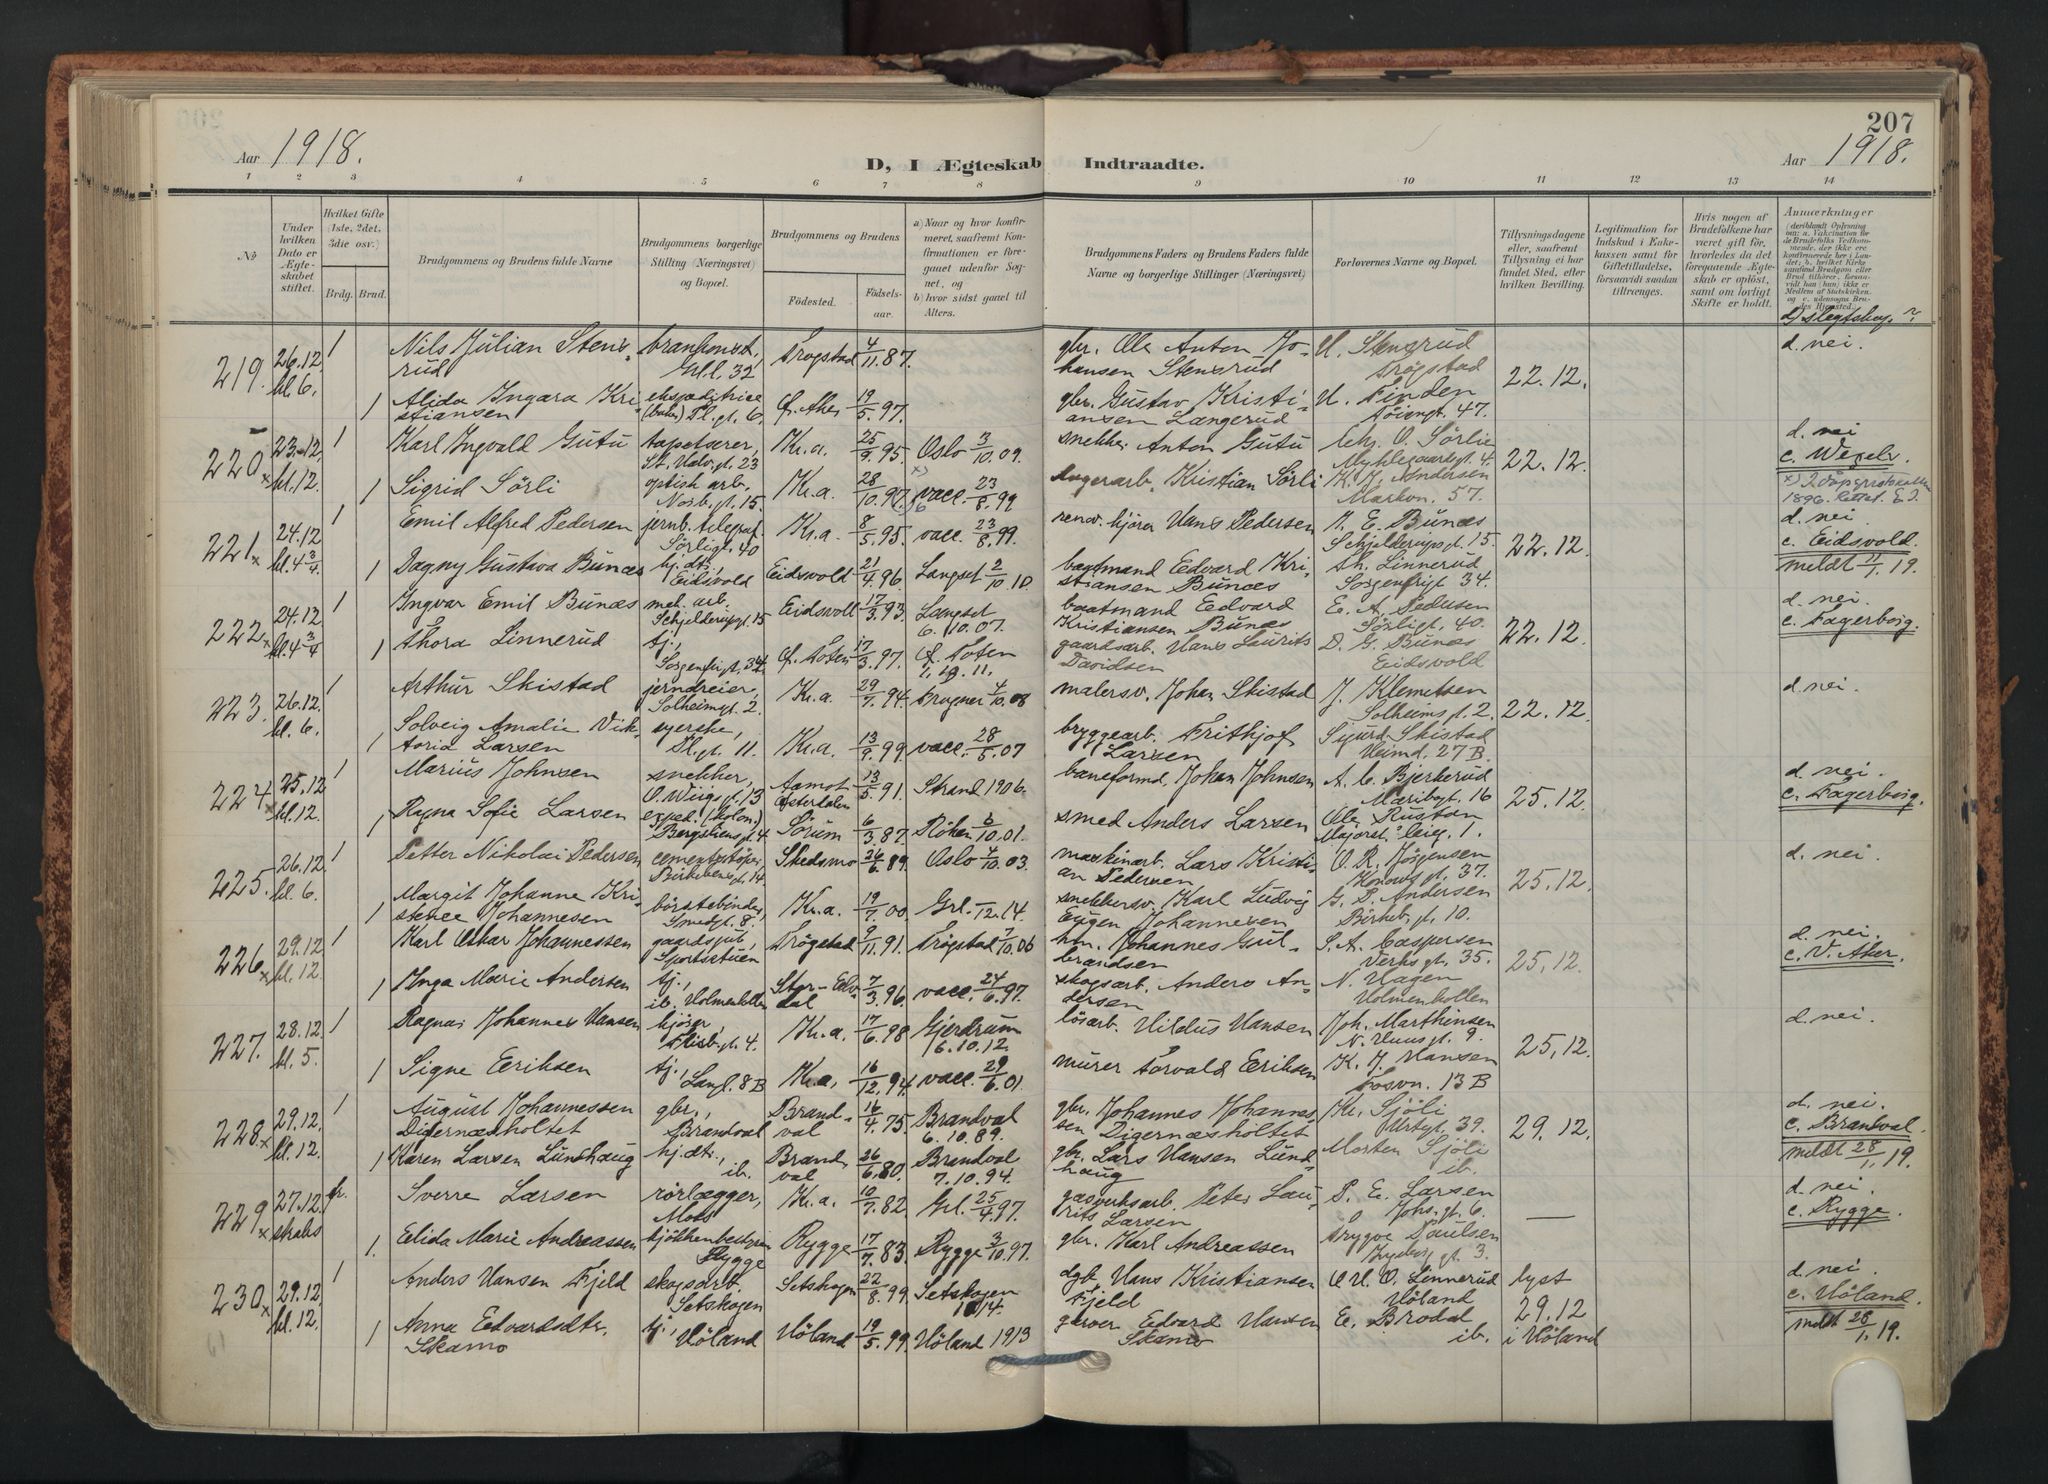 207
Aar 1918.
D, I Ægteskab Indtraadte.
Aar 1918.
1 2 3 4 5 6 7 8 9 10 11 12 13 14
No
Under hvilken Dato er Ægteskabet stiftet.
Hvilket Gifte (1ste, 2det, 3die osv.)
Brdg. Brud.
Brudgommens og Brudens fulde Navne
Brudgommens borgerlige Stilling (Næringsvei) og Bopæl.
Brudgommens og Brudens
Födested. Födselsaar.
a) Naar og hvor konfirmeret, saafremt Konfirmationen er foregaaet udenfor Sognet, og
b) hvor sidst gaaet til Alters.
Brudgommens Faders og Brudens Faders fulde Navne og borgerlige Stillinger (Næringsvei)
Forlovernes Navne og Bopæl.
Tillysningsdagene eller, saafremt Tillysning ei har fundet Sted, efter hvilken Bevilling.
Legitimation for Indskud i Enkekassen samt for Giftetilladelse, forsaavidt saadan tiltrænges.
Hvis nogen af Brudefolkene har været gift för, hvorledes da det foregaaende Ægteskab er oplöst, samt om lovligt Skifte er holdt.
Anmærkninger
d) slegtskap?
219. 26.12 kl. 6. 1 Nils Julian Stensrud Trögstad 4/11 87. gbr. Ole Anton Johansen Stensrud H. Stensrud Trögstad 22.12. d. nei.
1 Alida Ingara Kristiansen ekspeditrice 19/5 97. gbr. Gustav Kristiansen Langerud H. Finden Töiengt. 47.
220 x 23.12. kl. 12. 1 Karl Ingvald Gutu tapetserer, St. Halv. gt. 23 Kr.a. 25/9 95. Oslo 3/10 09. snekker Anton Gutu Chr. O. Sörlie 22.12. d. nei
c. Wexels.
1 Sigrid Sörli optisk arb. Norb. gt. 15. Kr.a. 28/10 97. x) vacc. 23/8 99 Kristian Sörli K. J. Andersen Markvn. 57. 1896. Rettet. E.J.
221 x 24.12 kl. 4 3/4 1 Emil Alfred Pedersen jernb. telegraf. Sörligt. 40 Kr.a. 8/5 95. vacc. 23/8 99. renov. kjörer Hans Pedersen H. E. Bunæs Schjelderupsgt. 15. 22.12. d. nei
c. Eidsvold.
meldt 11/1 19.
1 Dagny Gustava Bunæs hj. dtr., Eidsvold Eidsvold 21/4 96. Langset 2/10 10 baatmand Edvard Kristiansen Bunæs Th. Linnerud Sorgenfrigt. 34.
222 x 24.12 kl. 4 3/4 1 Ingvar Emil Bunæs met. arb. Schjelderupgt. 15 Eidsvoll 17/3 93 Langset 6.10.07. baatmand Edvard Kristiansen Bunæs E. A. Pedersen Sörligt. 40. 22.12. d. nei.
c. Fagerborg.
1 Thora Linnerud tj., Sorgenfrigt. 34. Ö. Toten 17/3 97. Ö. Toten 1.10.11. gaardsarb. Hans Laurits Davidsen D. G. Bunæs Eidsvold
223. 26.12. kl. 6. 1 Arthur Skistad jerndreier, Solheimgt. 2. Kr.a. 29/7 94. Frogner 4/10 08 malersv. Johan Skistad J. Klemetsen Solheims gt. 2. 22.12. d. nei.
1 Solveig Amalie Viktoria Larsen syerske, Pl. gt. 11. Kr.a. 13/9 99 vacc. 28/5 07 bryggearb. Frithjof Larsen Sigurd Skistad Heimd. 27 B.
224 x 25.12 kl. 12. 1 Marius Johnsen snekker, O. Wiigs gt. 13 Aamot Østerdalen 13/5 91. Strand 1906. baneformd. Johan Johnsen A. C. Bjerkerud Maribogt. 16 25.12. d. nei.
c. Fagerborg.
1 Ragna Sofie Larsen exped. (kolon.) Bergstiens gt. 4 Sörum 6/3 87. Röken 6/10 01. smed Anders Larsen Ole Rustan 1.
225. 26.12 kl. 6. 1 Petter Nikolai Pedersen cementstöper, Birkebens gt. 14. Skedsmo 26/6 89. Oslo 4/10 03. maskinarb. Lars Kristian Pedersen O. R. Jörgensen Konows gt. 37. 25.12. d. nei.
1 Margit Johanne Kristense Johannesen börstebinder, Smedgt. 8. Kr.a. 19/7 00. Grl. /12 14. snekkersv. Karl Ludvig Eugen Johannesen G. P. Andersen Birkeb. gt. 10.
226 x 29.12. kl. 12. 1 Karl Oskar Johannessen gaardsgut, Sportsstuen Trögstad 9/11 91. Trögstad 7/10 06 Johannes Gulbrandsen S. A. Caspersen Verks gt. 35. 25.12. d. nei.
c. V. Aker.
1 Inga Marie Andersen tj., ib. Holmenkollen Stor-Elvdal 7/3 96. vacc. 24/6 97. skogsarb. Anders Andersen N. Hagen Holmenkollen
227. 28.12 kl. 5. 1 Ragnar Johannes Hansen kjörer, Flisb. gt. 4. Kr.a. 17/6 98 Gjerdrum 6.10.12. lösarb. Hildus Hansen Joh. Marthinsen N. Huus gt. 9. 25.12. d. nei.
1 Signe Eriksen tj., Langl. 8 B Kr.a. 16/12 94. vacc. 29/6 01. murer Torvald Eriksen K. J. Hansen Fosvn. 13 B
228 x 29.12. kl. 12. 1 August Johannessen Digernæsholtet gbr., Brandval Brandval 16/4 75. Brandval 6.10.89. gbr. Johannes Johannessen Digernæsholtet Kr. Sjöli Urtegt. 39. 29.12. d. nei.
c. Brandval.
meldt 28/1 19.
1 Karen Larsen Lundhaug hj. dtr., ib. Brandval 26/6 80. Brandval 7.10.94. gbr. Lars Hansen Lundhaug Morten Sjöli ib.
229 x 27.12. straks fr. Sverre Larsen rörlægger, Moss Kr.a. 10/7 82. Grl. 25/4 97. gasverksarb. Peter Laurits Larsen P. E. Larsen Johs. gt. 6. — d. nei.
c. Rygge.
1. Elida Marie Andreassen kjökkenbestyrer, Rygge Rygge 17/7 83. Rygge 3/10 97. gbr. Karl Andreassen Trygve Poulsen Ingeborg gt. 3.
230 x 29.12. kl. 12. 1 Anders Hansen Fjeld skogsarb. Setskogen Setskogen 22/8 99. Setskogen 1914. Hans Kristiansen Fjeld O. H. O. Linnerud Höland lyst 29.12 i Höland d. nei.
c. Höland.
meldt 28/1 19.
1 Anna Edvardsdtr. Skamo tj., Höland Höland 19/5 99. Höland 1913 garver Edvard Hansen Skamo E. Brodal ib.